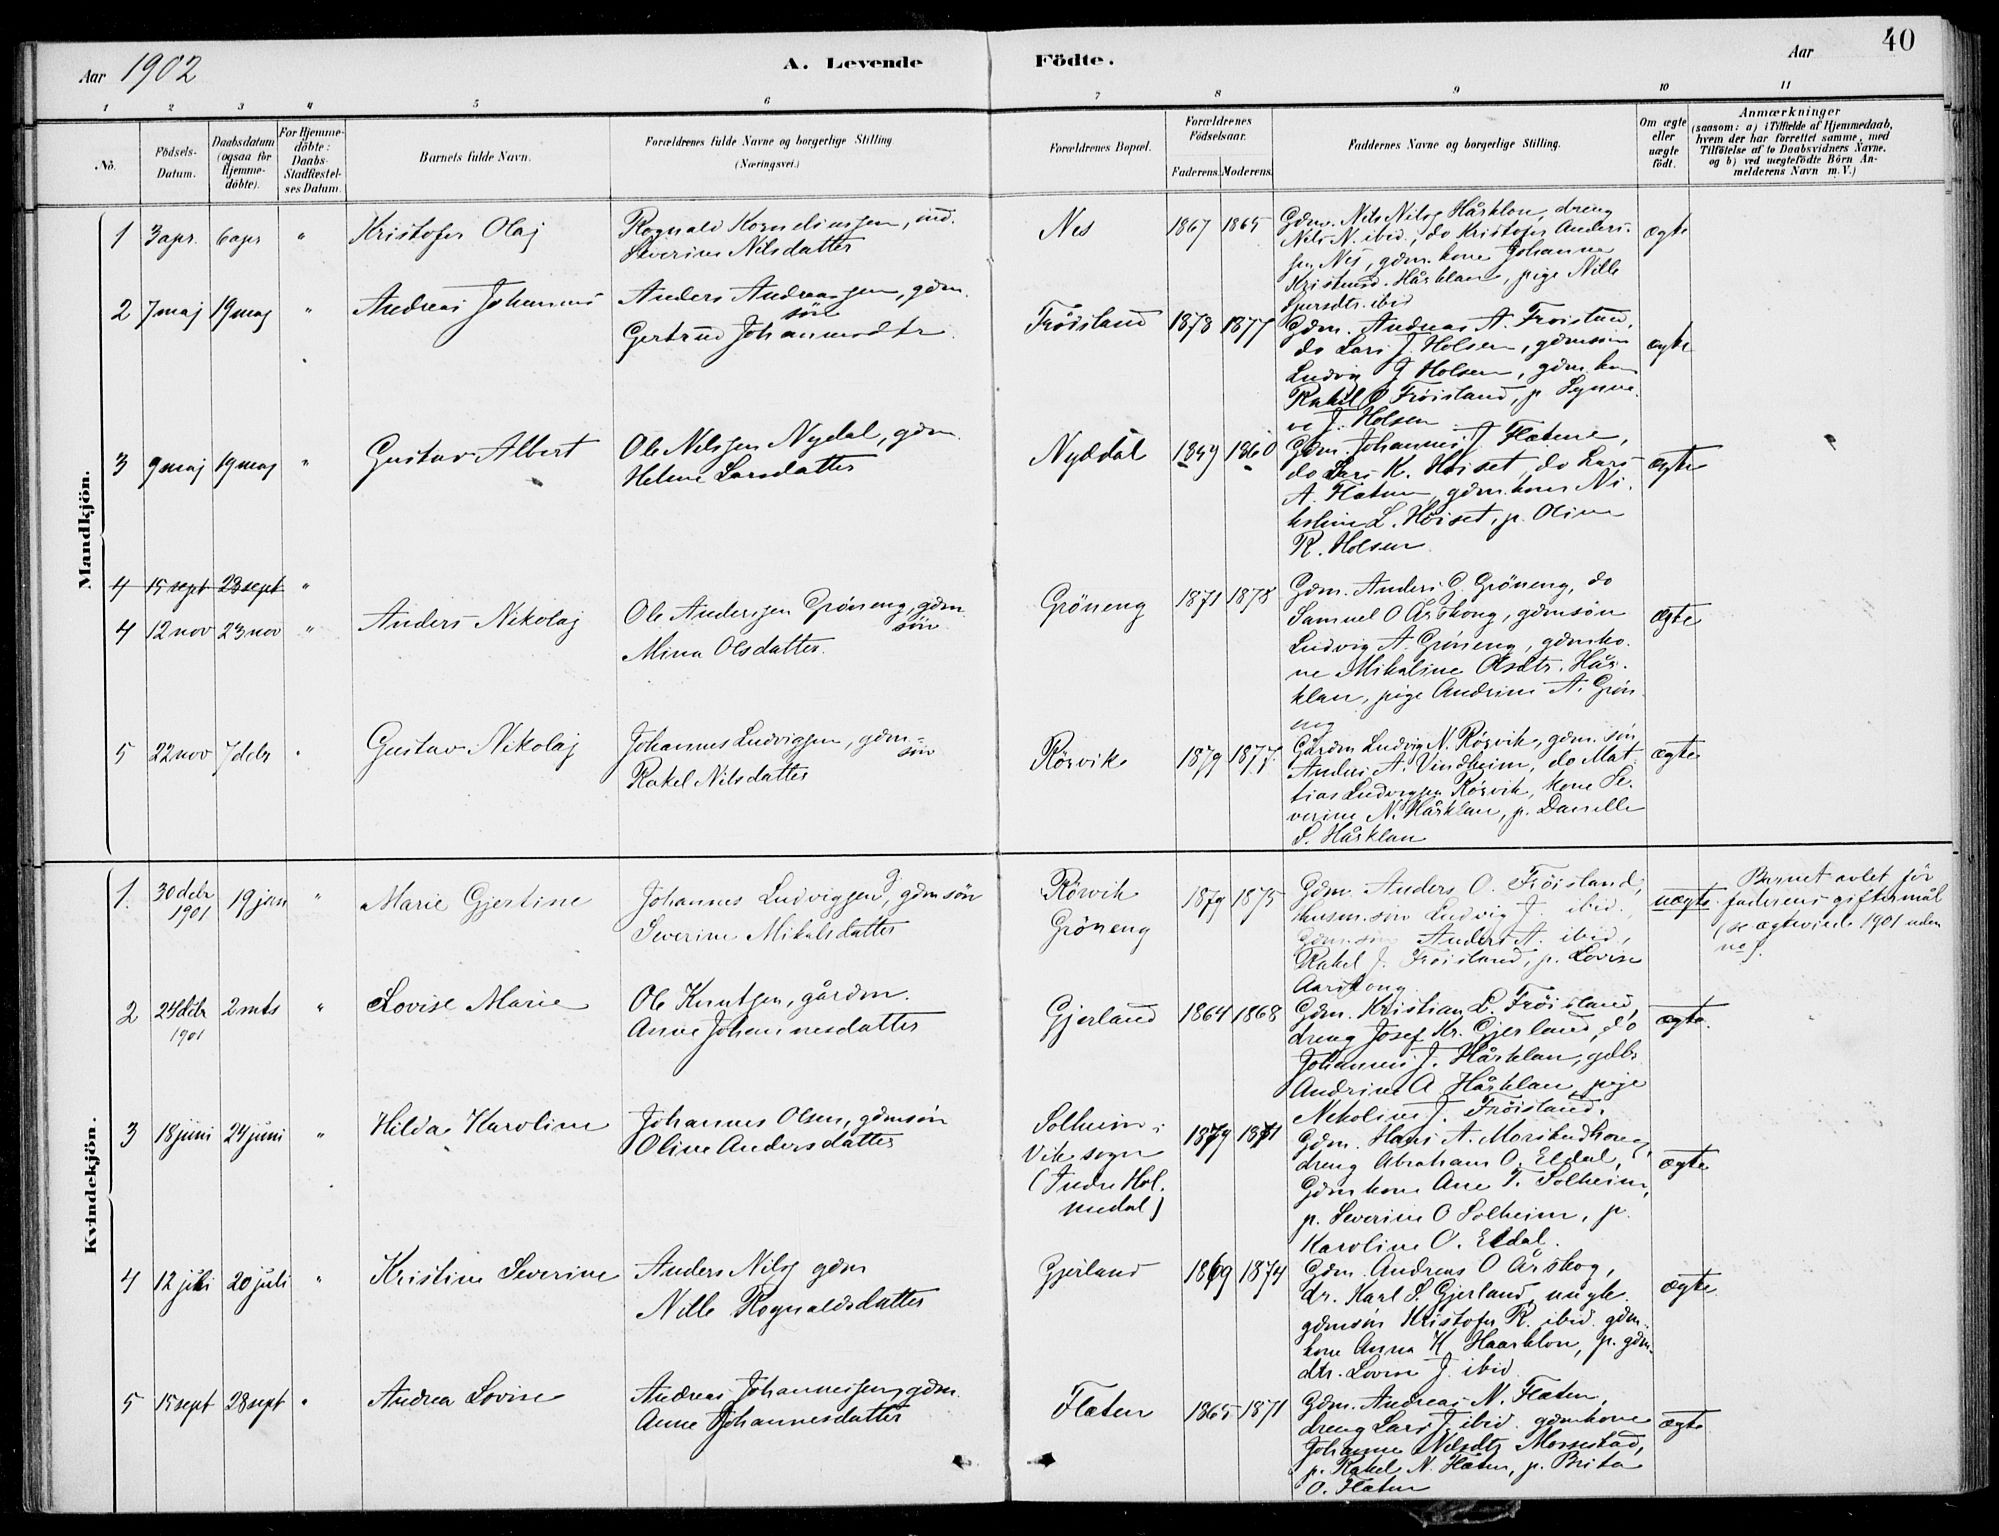 Aar 1902
A. Levende
Födte.
Aar
40
1 2 3 4 5 6 7 8 9 10 11
No.
Födsels-Datum.
Daabsdatum (ogsaa for Hjemme-döbte).
For Hjemme-döbte: Daabs-Stadfæstel-ses Datum.
Barnets fulde Navn.
Forældrenes fulde Navne og borgerlige Stilling
(Næringsvei.)
Forældrenes Bopæl.
Forældrenes Födselsaar.
Faderens. Moderens.
Faddernes Navne og borgerlige Stilling.
Om ægte eller uægte födt.
Anmærkninger
(saasom: a) i Tilfælde af Hjemmedaab,
hvem der har forrettet samme, med
Tilföielse af to Daabsvidners Navne.
og b) ved uægtefödte Börn An-
melderens Navn m. V.)
Mandkjön.
1 3 apr. 6 apr " Kristofer Olaj
Rognald Korneliussen, ind.
Severine Nilsdatter
Nes 1867 1865
Gdm. Nils Nilss Hårklau, dreng
Nils N. ibid., do Kristofer Anders-
sen Nes, gdm. kone Johanne
Kristensd. Hårklau, pige Nille
Sjursdtr. ibid
ægte
2 7 maj 19 maj " Andreas Johannes
Anders Andreassen, gdm.
søn
Gertrud Johannesdtr
Frøisland 1878 1877
Gdm. Andreas A. Frøisland,
do Lars J. Holsen, gdmsøn
Ludvig J Holsen, gdm.kone
Rakel O Frøisland, p Synne-
ve J. Holsen
ægte
3 9 maj 19 maj " Gustav Albert
Ole Nilssen Nydal, gdm.
Helene Larsdatter
Nydal 1859 1860
Gdm. Johannes J. Flatene,
do Lars K. Høiset, do Lars
A. Flaten, gdm.kone Ni-
koline L. Høiset, p. Oline
R. Holsen
ægte
4 15 sept 23 sept "
4 12 nov 23 nov " Anders Nikolaj
Ole Anderssen Grøneng, gdm
søn
Mina Olsdatter.
Grøneng 1871 1878
Gdm. Anders G. Grøneng, do
Samuel O Årskog, gdmsøn
Ludvig A. Grøneng, gdmko-
ne Mikaline Olsdtr. Hår-
klau, pige Andrine A. Grøn-
eng
ægte
5 22 nov 7 debr " Gustav Nikolaj
Johannes Ludvigssen, gdm-
søn
Rakel Nilsdatter
Rørvik 1879 1877
Gårdm Ludvig N. Rørvik, gdm. søn
Anders A. Vindheim, do Mat-
tias Ludvigssen Rørvik, kone Se-
verine N. Hårklau, p. Danielle
S. Hårklau
ægte
Kvindekjön.
1. 30 debr 1901 19 jan " Marie Gjertine
Johannes Ludvigssen, gdmsøn
Severine Mikalsdatter
Rørvik
Grøneng
1879 1875
Gdm. Anders O. Frøisland,
husm.søn Ludvig J. ibid.,
Gdmsøn Anders A. ibid,
Rakel J. Frøisland, p. Lovise
Aarskong.
uægte.
Barnet avlet før
faderens giftermål
(se ægteviede 1901 uden
ne).
2 24 debr 1901 2 mts " Lovise Marie
Ole Knutsen, gårdm.
Anne Johannesdatter
Gjerland 1864 1868
Gdm. Kristian L. Frøisland,
dreng Josef Kr. Gjerland, do
Johannes J. Hårklau, gdk
Andrine A Hårklau, pige
Nikoline J. Frøisland.
ægte.
3 18 juni 24 juni " Hilda Karoline
Johannes Olsen, gdmsøn
Oline Andersdatter
Solheim i
Vik sogn
(Indre Hol-
medal)
1879 1871
Gdm. Hans A.
dreng Abraham O. Eldal,
Gdmkone Ane T. Solheim,
p. Severine O Solheim, p.
Karoline O. Eldal.
ægte
4 12 juli 20 juli " Kristine Severine
Anders Nilss gdm
Nille Rognaldsdatter
Gjerland 1869 1874
Gdm. Andreas O Årskog,
dr. Karl S. Gjerland, ungk.
gdmsøn Kristofer R. ibid. gdm-
kone Anna K Haarklou, p. gdm.
dtr. Lovise J. ibid
ægte
5 15 sept 28 sept " Andrea Lovise
Andreas Johannessen, gdm.
Anne Johannesdatter
Flaten 1865 1871
Gdm. Andreas N. Flaten,
dreng Lars J. ibid. gdmkone
Johanne Nilsdtr Mossestad,
p. Rakel N. Flaten, p. Brita
O. Flaten
ægte